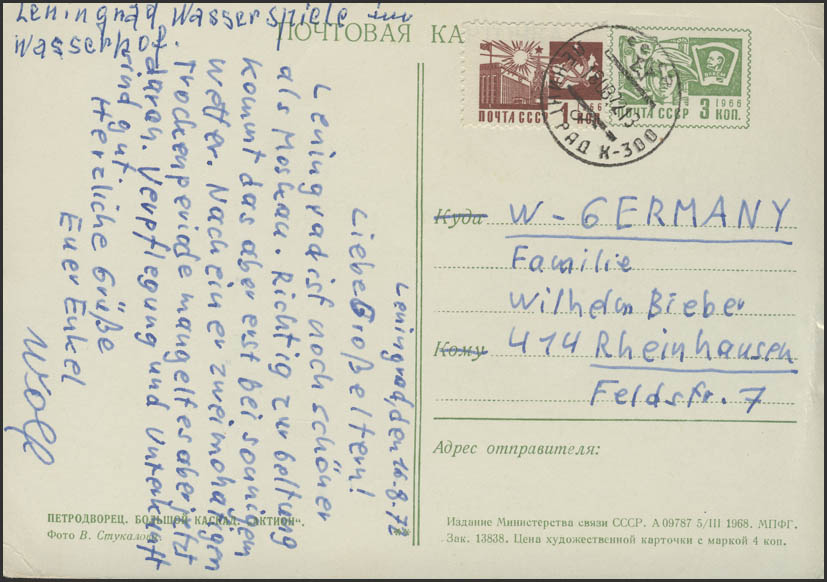 Leningrad Wasserspiele im
Wasserhof.
ПОЧТОВАЯ КА
Leningrad, den 16.8.72
Liebe Großeltern!
Leningrad ist noch schöner
als Moskau. Richtig zur Geltung
kommt das aber erst bei sonnigem
Wetter. Nach einer zweimonatigen
Trockenperiode mangelt es aber jetzt
daran. Verpflegung und Unterkunft
sind gut.
Herzliche Grüße
Euer Enkel
Wolf
ПОЧТА СССР 1 КОП.
1966
ПОЧТА СССР 3 КОП.
1966
ЛЕНИНГРАД К-300
Куда
W-GERMANY
Familie
Wilhelm Bieber
Кому
414 Rheinhausen
Feldstr. 7
Адрес отправителя:
ПЕТРОДВОРЕЦ. БОЛЬШОЙ КАСКАД. „АКТИОН".
Фото В. Стукалова
Издание Министерства связи СССР. А 09787 5/III 1968. МПФГ.
Зак. 13838. Цена художественной карточки с маркой 4 коп.